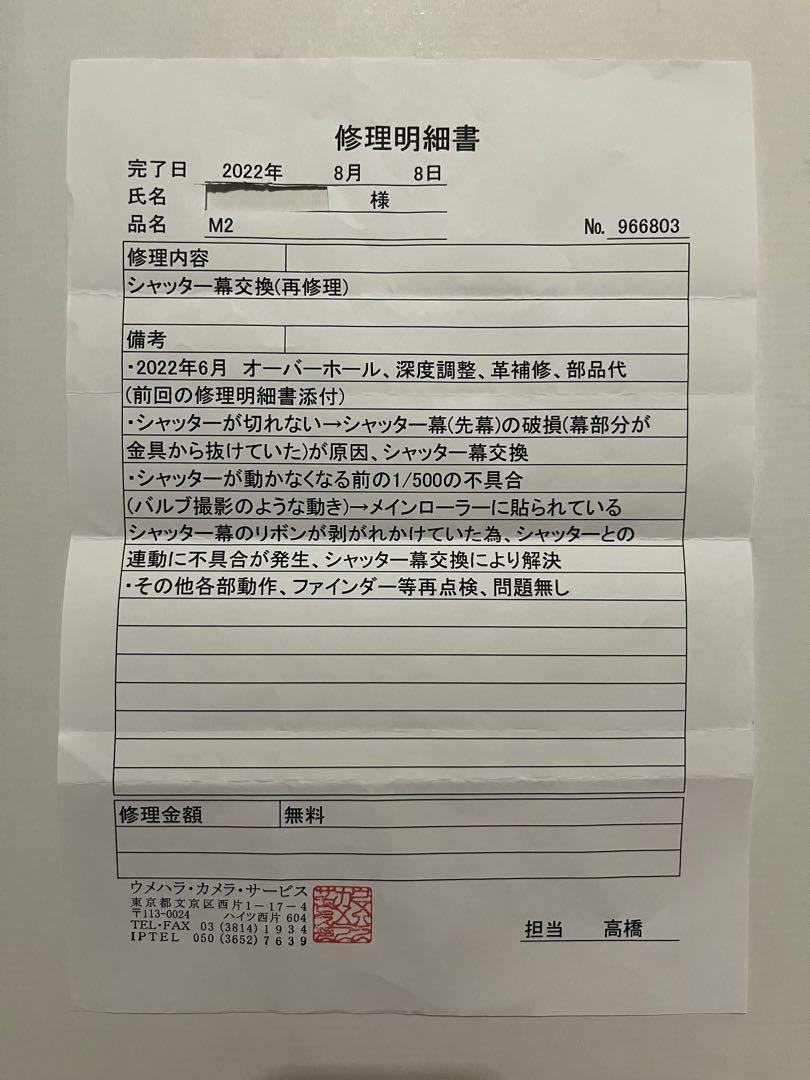 修理明細書
完了日 2022年 8月 8日
氏名 様
品名 M2 No. 966803
修理内容
シャッター幕交換(再修理)
備考
・2022年6月 オーバーホール、深度調整、革補修、部品代
(前回の修理明細書添付)
・シャッターが切れない→シャッター幕(先幕)の破損(幕部分が
金具から抜けていた)が原因、シャッター幕交換
・シャッターが動かなくなる前の1/500の不具合
(バルブ撮影のような動き)→メインローラーに貼られている
シャッター幕のリボンが剥がれかけていた為、シャッターとの
連動に不具合が発生、シャッター幕交換により解決
・その他各部動作、ファインダー等再点検、問題無し
修理金額 無料
ウメハラ・カメラ・サービス
東京都文京区西片1-17-4
〒113-0024 ハイツ西片 604
TEL・FAX 03 (3814) 1934
IPTEL 050 (3652) 7639
担当 高橋